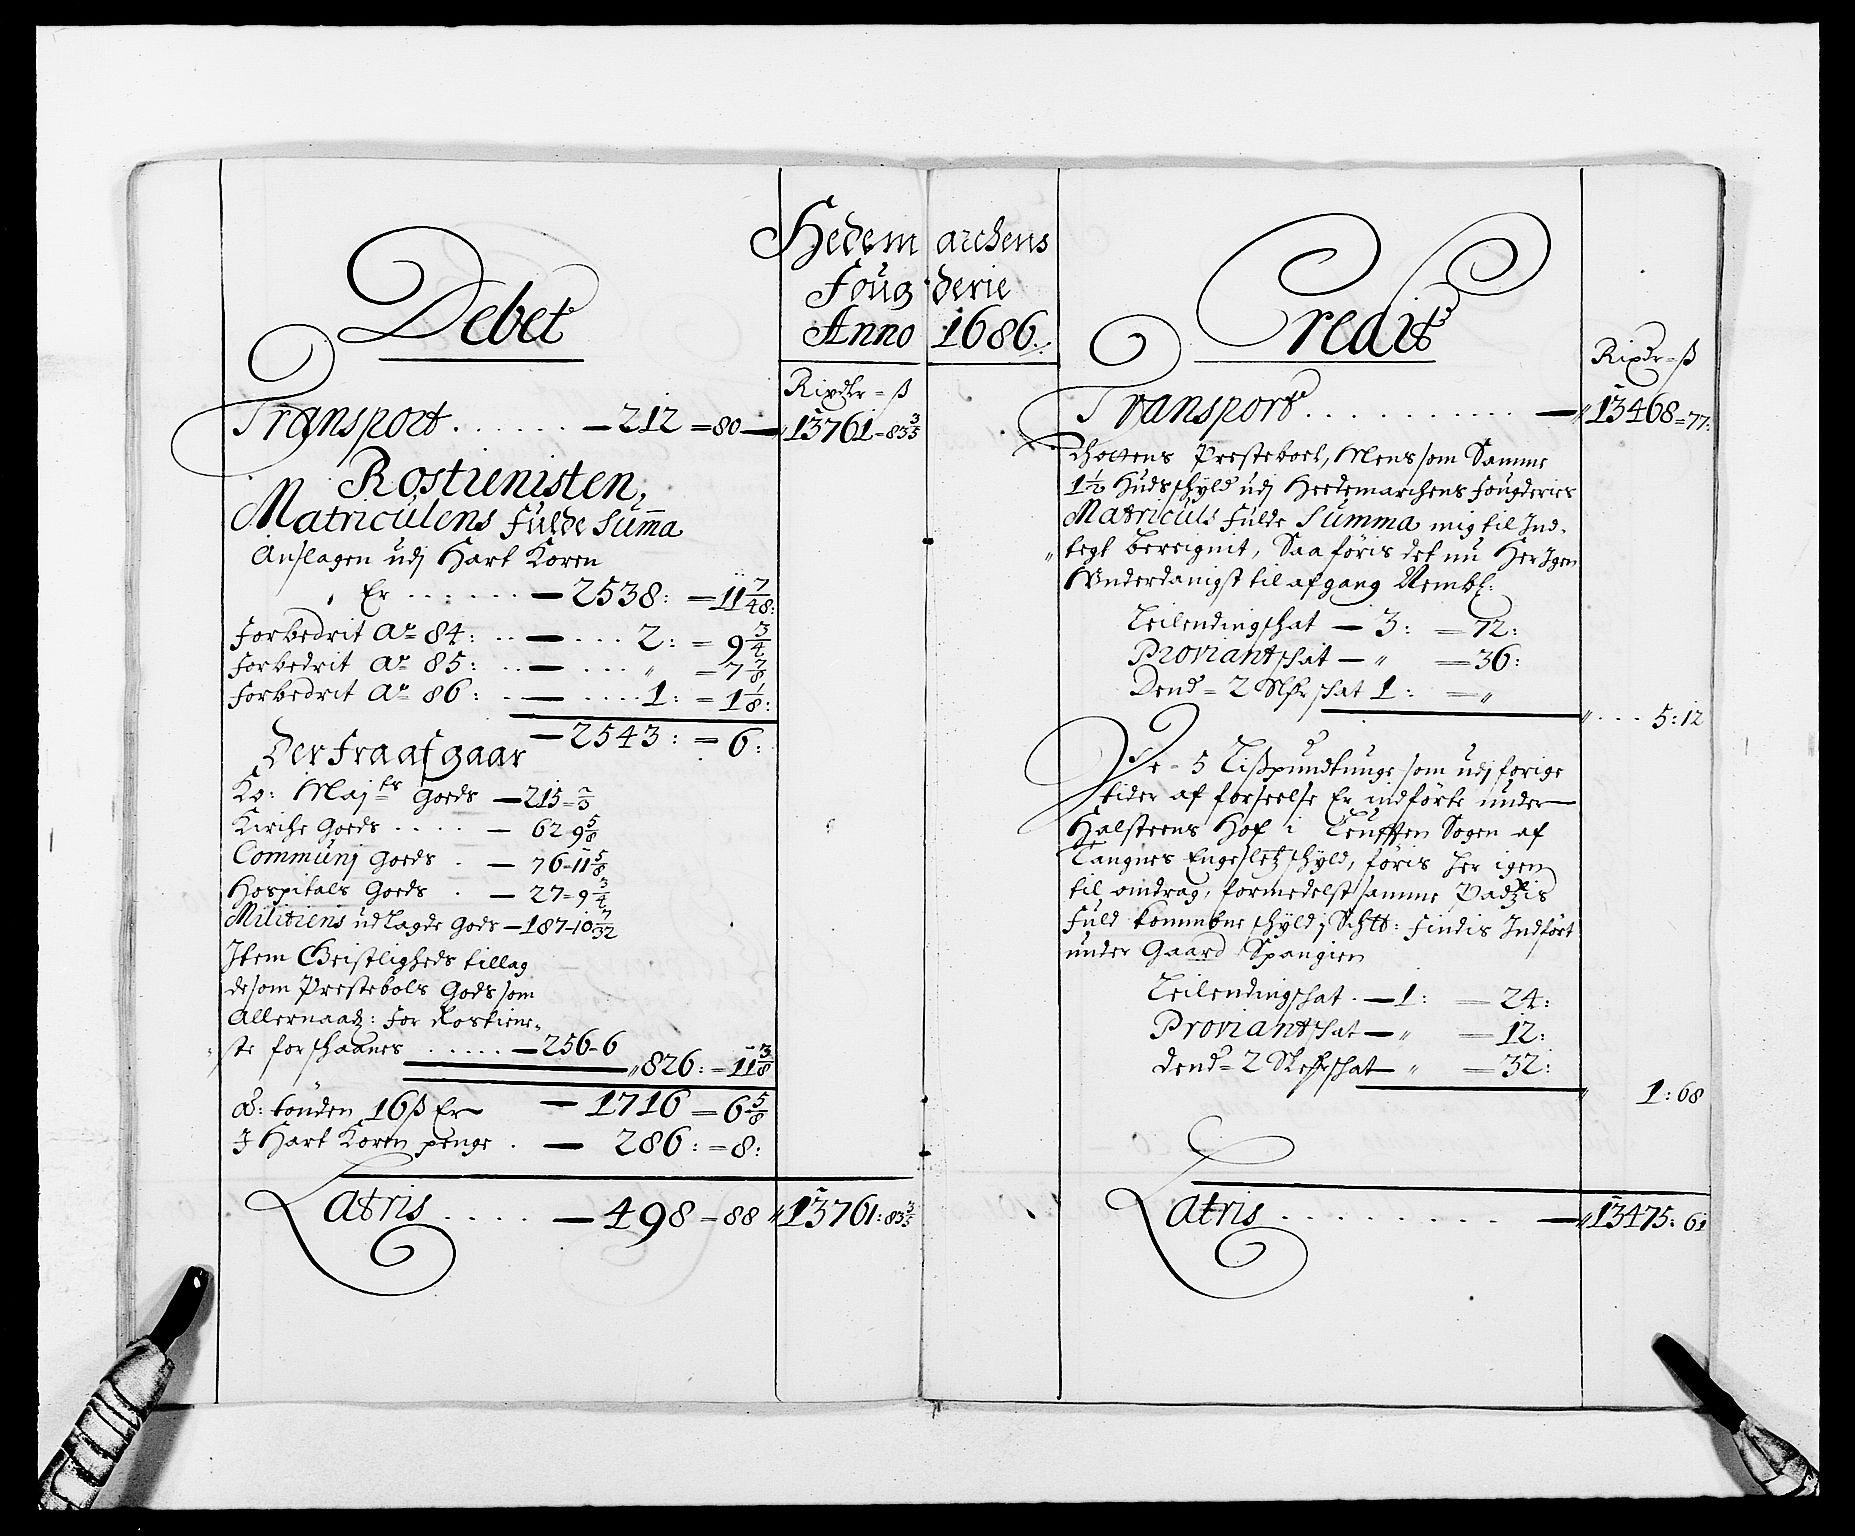 Hedemarchens
Fougderie
Anno 1686.
Debet
Rixdlr = ß
Transport. . . . . . — 212 = 80 — 13761 = 83 3/5
Rostienisten,
Matriculens fulde Summa
Anslagen udj Hart Koren
Er . . . . . . — 2538: = 11 7/48:
Forbedrit Ao 84: . . — . . . 2: = 9 3/4
Forbedrit Ao 85: . . — . . . " = 7 7/8
Forbedrit Ao 86: . . — . . . . 1: = 1 1/8:
— 2543: = 6:
Der fra afgaar
Ko: Majts Goeds — 215 = 2/3
Kirche Goeds . . . . — 62 - 9 5/8
Communj Goeds . — 76 - 11 5/8
Hospitals Goeds . — 27 = 9 3/4
Militiens udlagde Gods — 187 - 10 7/32
Item Geistligheds tillag
de som Prestebols Gods som
Allernaad: for Rostiene-
ste forschaanes . . . . . — 256 - 6
" 826: = 11 3/8
tønden 16 ß Er — 1716 = 6 5/8
I Hart Koren penge . — 286: = 8:
Latris . . . . — 498 = 88 " 13761: 83 3/5
Credit
Rixdr = ß
Transport . . . . . . . . . . . — " 13468 = 77:
Presteboel, Mens som Samme
1 1/2 Hudschyld udj Hedemarchens Fougderies
Matriculs fulde Summa mig til Ind-
tegt bereignit, Saa føris det nu Her Igen
Underdanigst til afgang Nembl:
Leilendingschat — 3: = 72:
Proviantschat — " = 36:
Dend = 2 Slescchat 1: = "
" . . . 5: 12
De - 5 Lißpund tunge som udj forige
tider af forseelse Er indførte under
Halsteens Hof i Sogen af
Tangnes Engesletz schyld, føris her igen
til omdrag, formedelst samme Padzis
fuld kommene schyld findis Indført
under Gaard Spangien
Leilendingschat . — 1: = 24:
Proviantschat — " = 12:
dend = 2 — " = 32:
" 1: 68
Latris . . . . . . . . . — " 13475: 61